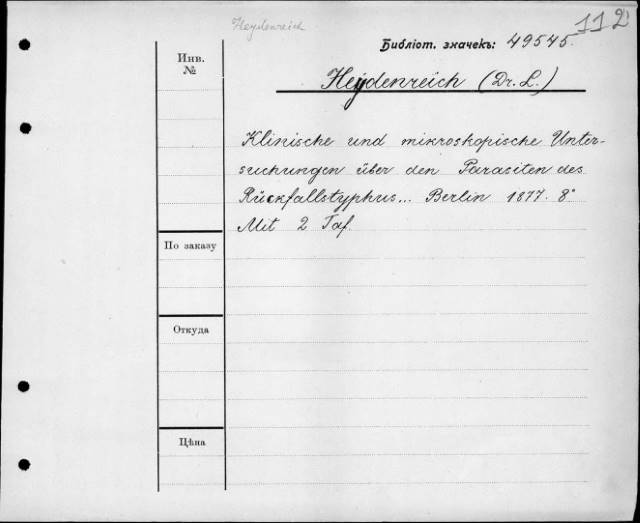 Heydenreich
112
Библіот. значекъ: 49545.
Инв.
№
Heydenreich (Dr. L.)
Klinische und mikroskopische Unter-
suchungen über den Parasiten des
Rückfallstyphus... Berlin 1877. 8°
Mit 2 Taf.
По заказу
Откуда
Цѣна